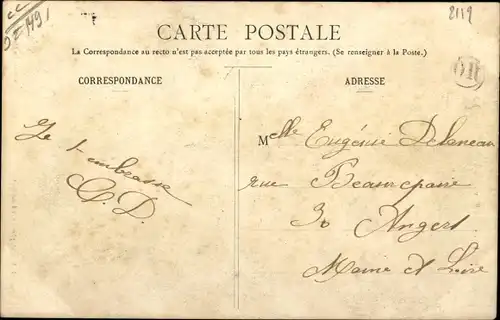 2119
CARTE POSTALE
La Correspondance au recto n'est pas acceptée par tous les pays étrangers. (Se renseigner à la Poste.)
CORRESPONDANCE
ADRESSE
OR
Je
t'embrasse
C. D.
Melle Eugénie Delaneau
rue Beaurepaire
30 Angers
Maine et Loire